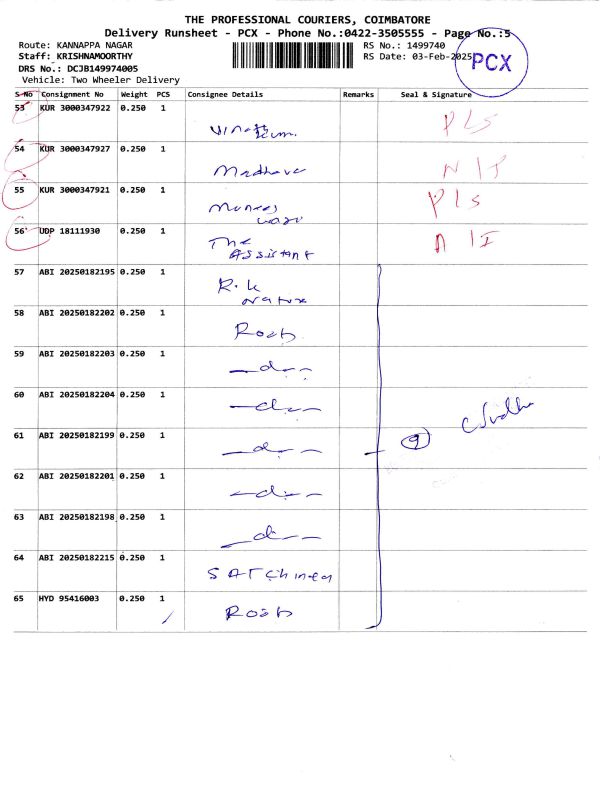 THE PROFESSIONAL COURIERS, COIMBATORE
Delivery Runsheet - PCX - Phone No.:0422-3505555 - Page No.:5
Route: KANNAPPA NAGAR
RS No.: 1499740
Staff: KRISHNAMOORTHY
RS Date: 03-Feb-2025
PCX
DRS No.: DCJB149974005
Vehicle: Two Wheeler Delivery
S-No Consignment No Weight PCS Consignee Details Remarks Seal & Signature
53 KUR 3000347922 0.250 1 PLS
54 KUR 3000347927 0.250 1 Madhava
55 KUR 3000347921 0.250 1 PLS
56 UDP 18111930 0.250 1 The Assistant
57 ABI 20250182195 0.250 1
58 ABI 20250182202 0.250 1
59 ABI 20250182203 0.250 1
60 ABI 20250182204 0.250 1
61 ABI 20250182199 0.250 1 9
62 ABI 20250182201 0.250 1
63 ABI 20250182198 0.250 1
64 ABI 20250182215 0.250 1
65 HYD 95416003 0.250 1